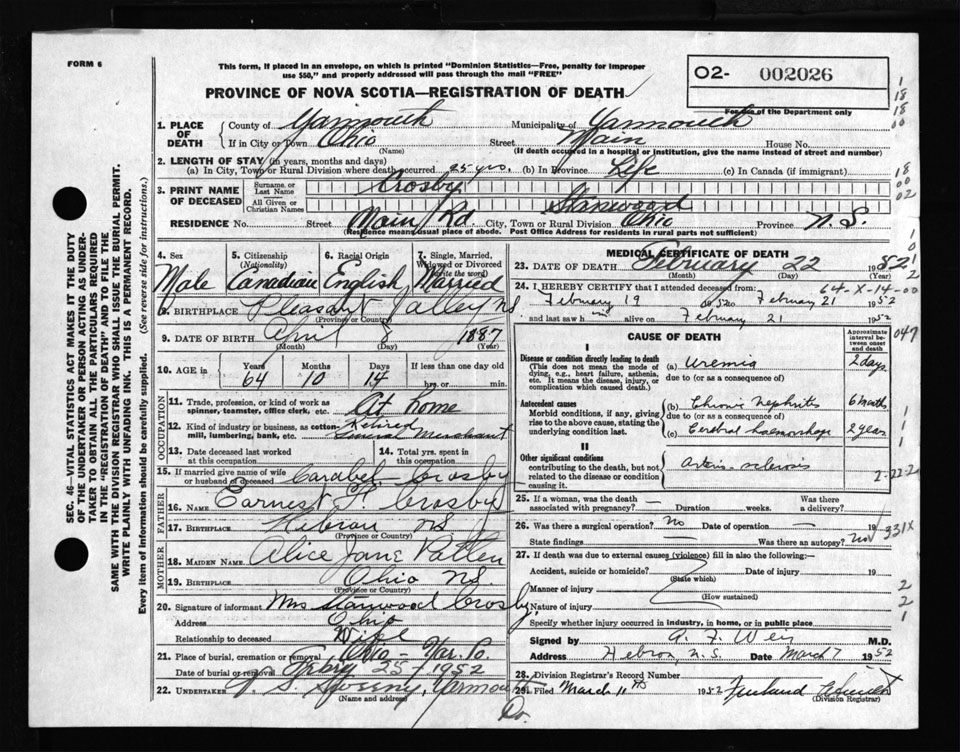 FORM 6
This form, if placed in an envelope, on which is printed "Dominion Statistics—Free, penalty for improper
use $50," and properly addressed will pass through the mail "FREE"
02- 002026
PROVINCE OF NOVA SCOTIA—REGISTRATION OF DEATH
For use of the Department only
1. PLACE OF DEATH
County of Yarmouth Municipality of Yarmouth
If in City or Town Ohio Street Main House No.
(Name) (If death occurred in a hospital or institution, give the name instead of street and number)
2. LENGTH OF STAY (in years, months and days)
(a) In City, Town or Rural Division where death occurred 25 yrs. (b) In Province Life (c) In Canada (if immigrant)
3. PRINT NAME OF DECEASED
Surname, or Last Name Crosby
All Given or Christian Names Stanwood
RESIDENCE No. Street Main Rd. City, Town or Rural Division Ohio Province N.S.
(Residence means usual place of abode. Post Office Address for residents in rural parts not sufficient)
4. Sex Male
5. Citizenship (Nationality) Canadian
6. Racial Origin English
7. Single, Married, Widowed or Divorced (write the word) Married
8. BIRTHPLACE Pleasant Valley NS
(Province or Country)
9. DATE OF BIRTH April 8 1887
(Month) (Day) (Year)
10. AGE in Years 64 Months 10 Days 14 If less than one day old hrs. or min.
OCCUPATION
11. Trade, profession, or kind of work as spinner, teamster, office clerk, etc. At home
12. Kind of industry or business, as cotton-mill, lumbering, bank, etc. Retired General Merchant
13. Date deceased last worked at this occupation
14. Total yrs. spent in this occupation
15. If married give name of wife or husband of deceased Carabel Crosby
FATHER
16. NAME Earnest F. Crosby
17. BIRTHPLACE Hebron NS
(Province or Country)
MOTHER
18. MAIDEN NAME Alice Jane Patten
19. BIRTHPLACE Ohio NS.
(Province or Country)
20. Signature of informant Mrs Stanwood Crosby
Address Ohio
Relationship to deceased Wife
21. Place of burial, cremation or removal Ohio - Yar. Co.
Date of burial or removal Febry 25 - 1952
22. UNDERTAKER V. S. Sweeny, Yarmouth
(Name and address)
MEDICAL CERTIFICATE OF DEATH
23. DATE OF DEATH February 22 1952
(Month) (Day) (Year)
64-X-14-00
24. I HEREBY CERTIFY that I attended deceased from:
February 19 1952 to February 21 1952
and last saw him alive on February 21 1952
CAUSE OF DEATH
Approximate interval between onset and death
I
Disease or condition directly leading to death
(This does not mean the mode of dying, e.g., heart failure, asthenia, etc. It means the disease, injury, or complication which caused death.)
(a) Uremia 2 days
due to (or as a consequence of)
Antecedent causes
Morbid conditions, if any, giving rise to the above cause, stating the underlying condition last.
(b) Chronic Nephritis 6 months
due to (or as a consequence of)
(c) Cerebral haemorrhage 2 years
II
Other significant conditions
contributing to the death, but not related to the disease or condition causing it.
Arterio-sclerosis
25. If a woman, was the death associated with pregnancy? Duration weeks. Was there a delivery?
26. Was there a surgical operation? No Date of operation 19
State findings Was there an autopsy? No
331X
27. If death was due to external causes (violence) fill in also the following:
Accident, suicide or homicide? Date of injury 19
(State which)
Manner of injury
(How sustained)
Nature of injury
Specify whether injury occurred in industry, in home, or in public place
Signed by M.D.
Address Hebron, N.S. Date March 7 1952
28. Division Registrar's Record Number
29. Filed March 11th 1952
(Division Registrar)
SEC. 46—VITAL STATISTICS ACT MAKES IT THE DUTY
OF THE UNDERTAKER OR PERSON ACTING AS UNDERTAKER TO OBTAIN ALL THE PARTICULARS REQUIRED
IN THE "REGISTRATION OF DEATH" AND TO FILE THE
SAME WITH THE DIVISION REGISTRAR WHO SHALL ISSUE THE BURIAL PERMIT.
WRITE PLAINLY WITH UNFADING INK. THIS IS A PERMANENT RECORD.
Every item of information should be carefully supplied. (See reverse side for instructions.)